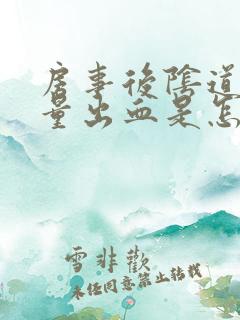 房事後陰道
量出血是怎
雪非歡
未经同意禁止转载